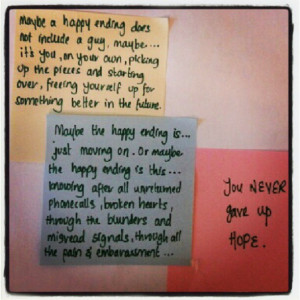 Maybe a happy ending does
not include a guy, maybe....
it's you, on your own, picking
up the pieces and starting
over, freeing yourself up for
something better in the future.
Maybe the happy ending is...
just moving on. Or maybe
the happy ending is this...
knowing after all unreturned
phonecalls, broken hearts,
through the blunders and
misread signals, through all
the pain & embarassment...
You NEVER
gave up
HOPE.